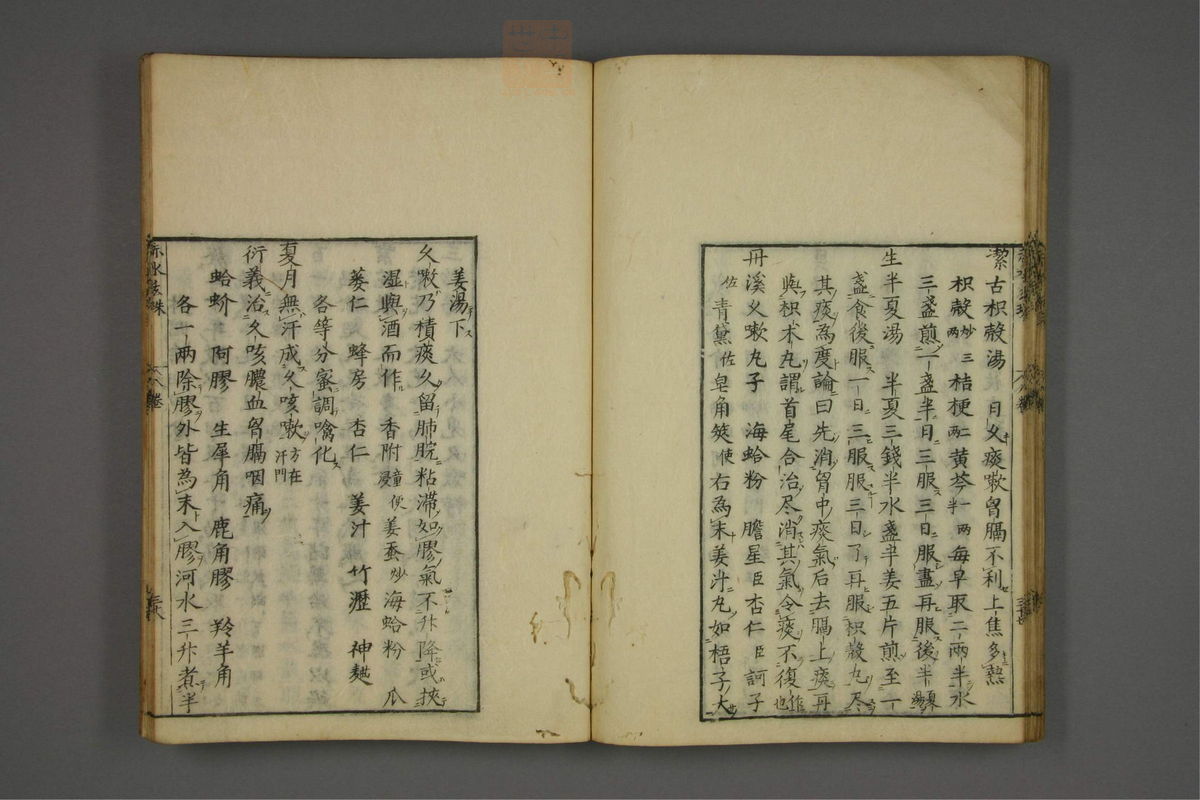 潔古枳殼湯 曰久痰嗽胷膈不利上焦多熱
枳殼炒三両桔梗二両黄芩一両半每早取二両半水
三盞煎一盞半日三服三日服盡再服後半夏湯
生半夏湯 半夏三錢半水盞半姜五片煎至一
盞食後服一日三服服三日了再服枳殼丸尽
其痰為度論曰先消胷中痰氣后去膈上痰再
與枳术丸謂首尾合治尽消其氣令痰不復作也
丹溪乂嗽丸子 海蛤粉 膽星臣杏仁臣訶子
佐青黛佐皂角筴使右為末姜汁丸如梧子大
姜湯下
久嗽乃積痰久留肺脘粘滞如膠氣不升降或挾
湿與酒而作 香附童便浸姜蚕炒海蛤粉 瓜
蒌仁 蜂房 杏仁 姜汁 竹瀝 神麯
各等分蜜調噙化
夏月無汗成久咳嗽方在汗門
衍義治久咳膿血胷膈咽痛
蛤蚧 阿膠 生犀角 鹿角膠 羚羊角
各一両除膠外皆為末入膠河水三升煮半